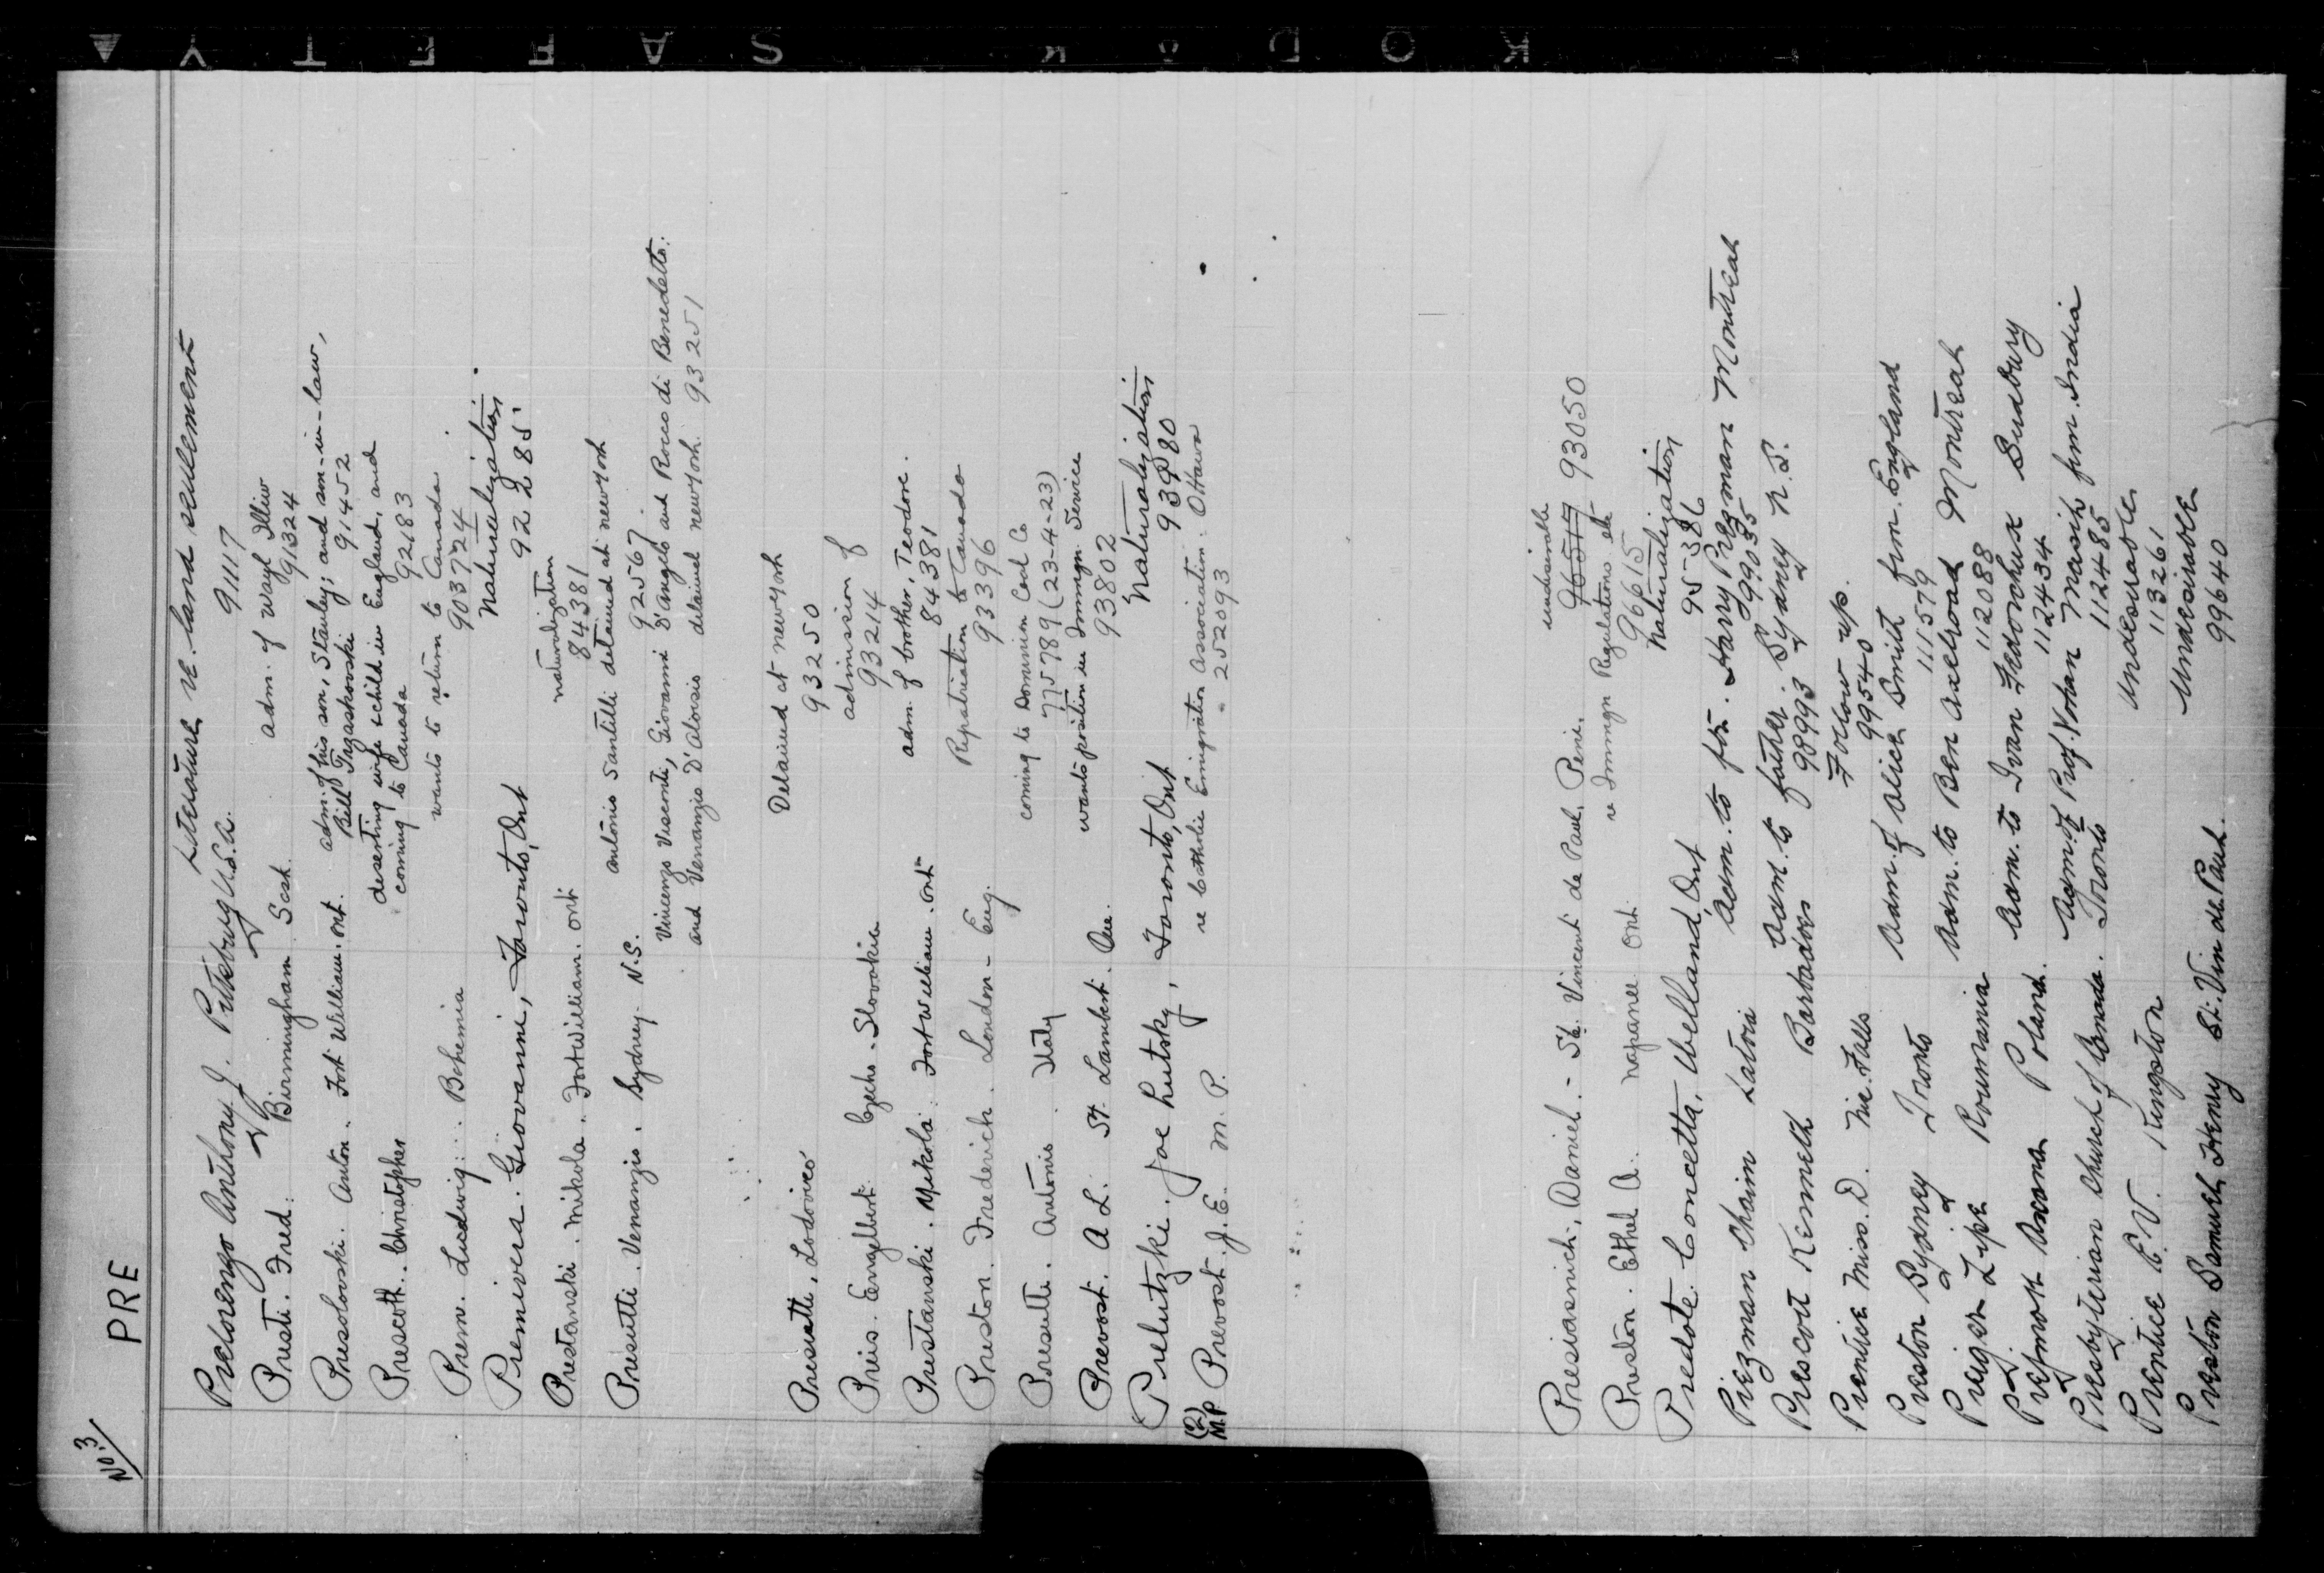 KODAK SAFETY
No. 3
PRE
Prelorenzo Anthony J. Pittsburg U.S.A. Literature re. land settlement
91117
Presti. Fred. Birmingham Sask. adm. of Wasyl Illiw
91324
Presolovski. Anton. Fort William. Ont. adm. of his son, Stanley; and son-in-law,
Bill 91452
Prescott. Christopher deserting wife & child in England, and
coming to Canada 92183
Prem. Ludwig. Bohemia wants to return to Canada.
903724
Premivera. Giovanni, Toronto, Ont Naturalization
92285
Prestanski. Mikola. Fort William. Ont naturalization
84381
Presutti. Venanzio. Sydney. N.S. Antonio Santilli detained at New York
92567.
Vincenzo Visconti, Giovanni D'Angelo and Rocco di Benedetto.
and Venanzio D'Aloisio detained New York. 93251
Presutti, Lodovico Detained at New York
93250
Preis. Engelbert. Czecho-Slovakia admission of
93214
Prestanski. Mikola. Fort William. Ont adm. of brother, Teodore.
84381
Preston. Frederick. London - Eng. Repatriation to Canada
93396
Presutti. Antonio. Italy coming to Dominion Coal Co
775789 (23-4-23)
Prevost. A L. St. Lambert. Que. wants position in Immgn. Service
93802
Prelutzki. Joe Lutsky, Toronto, Ont Naturalization
93980
M.P. Prevost. J. E. M. P. re Catholic Emigration Association. Ottawa
252093
undesirable
Presiasnich, Daniel. - St. Vincent de Paul, Peni. 96517 93050
Preston. Ethel A. Napanee Ont. re Immgn Regulations etc
96615
Predote. Concetta, Welland, Ont Naturalization
95-386
Prezman Chaim Latvia Adm. to fr. Harry Prezman Montreal
99035
Prescott Kenneth Barbados Adm. to father. Sydney N.S.
98993
Prentice Miss. D. Nia. Falls Follow up.
99540
Preston Sydney Toronto Adm. of Alice Smith from England
111579
Preiger Lipe Roumania Adm. to Ben Axelroad Montreal
112088
Prejmak Poland. Adm. to Ivan Sudbury
112434
Presbyterian Church of Canada. Toronto Adm. of Prof. Masih from India
112485
Prentice E. V. Kingston Undesirable
113261
Preston Samuel Henry St. Vin de Paul. Undesirable
99640